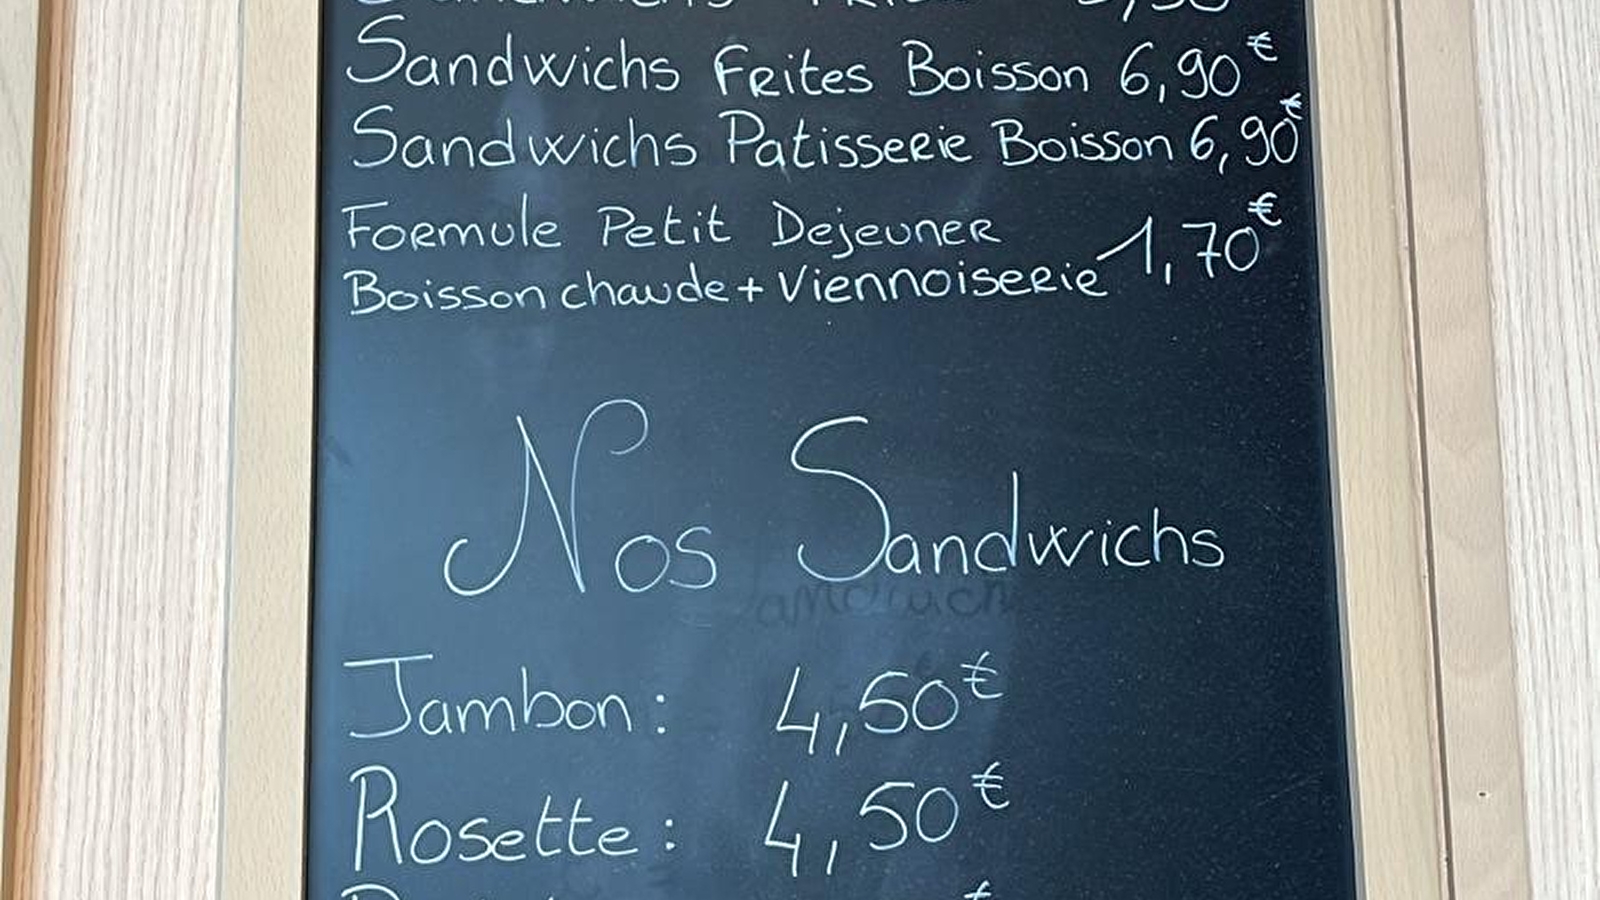 Sandwichs Frites Boisson 6,90€
Sandwichs Patisserie Boisson 6,90€
Formule Petit Dejeuner
Boisson chaude + Viennoiserie 1,70€
Nos Sandwichs
Jambon : 4,50€
Rosette : 4,50€